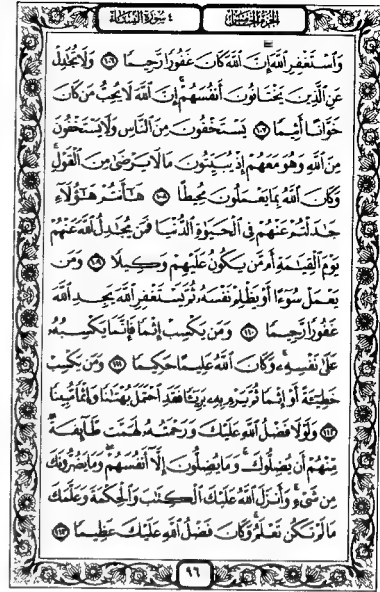 الجزء الخامس
٤ سورة النساء
وَٱسْتَغْفِرِ ٱللَّهَ إِنَّ ٱللَّهَ كَانَ غَفُورًا رَّحِيمًا ١٠٦ وَلَا تُجَٰدِلْ
عَنِ ٱلَّذِينَ يَخْتَانُونَ أَنفُسَهُمْ إِنَّ ٱللَّهَ لَا يُحِبُّ مَن كَانَ
خَوَّانًا أَثِيمًا ١٠٧ يَسْتَخْفُونَ مِنَ ٱلنَّاسِ وَلَا يَسْتَخْفُونَ
مِنَ ٱللَّهِ وَهُوَ مَعَهُمْ إِذْ يُبَيِّتُونَ مَا لَا يَرْضَىٰ مِنَ ٱلْقَوْلِ
وَكَانَ ٱللَّهُ بِمَا يَعْمَلُونَ مُحِيطًا ١٠٨ هَٰٓأَنتُمْ هَٰٓؤُلَآءِ
جَٰدَلْتُمْ عَنْهُمْ فِى ٱلْحَيَوٰةِ ٱلدُّنْيَا فَمَن يُجَٰدِلُ ٱللَّهَ عَنْهُمْ
يَوْمَ ٱلْقِيَٰمَةِ أَم مَّن يَكُونُ عَلَيْهِمْ وَكِيلًا ١٠٩ وَمَن
يَعْمَلْ سُوٓءًا أَوْ يَظْلِمْ نَفْسَهُۥ ثُمَّ يَسْتَغْفِرِ ٱللَّهَ يَجِدِ ٱللَّهَ
غَفُورًا رَّحِيمًا ١١٠ وَمَن يَكْسِبْ إِثْمًا فَإِنَّمَا يَكْسِبُهُۥ
عَلَىٰ نَفْسِهِۦ وَكَانَ ٱللَّهُ عَلِيمًا حَكِيمًا ١١١ وَمَن يَكْسِبْ
خَطِيٓـَٔةً أَوْ إِثْمًا ثُمَّ يَرْمِ بِهِۦ بَرِيٓـًٔا فَقَدِ ٱحْتَمَلَ بُهْتَٰنًا وَإِثْمًا مُّبِينًا
١١٢ وَلَوْلَا فَضْلُ ٱللَّهِ عَلَيْكَ وَرَحْمَتُهُۥ لَهَمَّت طَّآئِفَةٌ
مِّنْهُمْ أَن يُضِلُّوكَ وَمَا يُضِلُّونَ إِلَّآ أَنفُسَهُمْ وَمَا يَضُرُّونَكَ
مِن شَىْءٍ وَأَنزَلَ ٱللَّهُ عَلَيْكَ ٱلْكِتَٰبَ وَٱلْحِكْمَةَ وَعَلَّمَكَ
مَا لَمْ تَكُن تَعْلَمُ وَكَانَ فَضْلُ ٱللَّهِ عَلَيْكَ عَظِيمًا ١١٣
٩٦